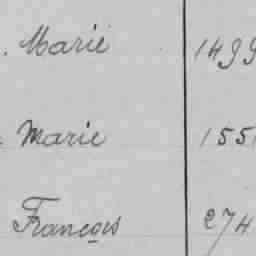 . Marie 1499
Marie 155
François 274